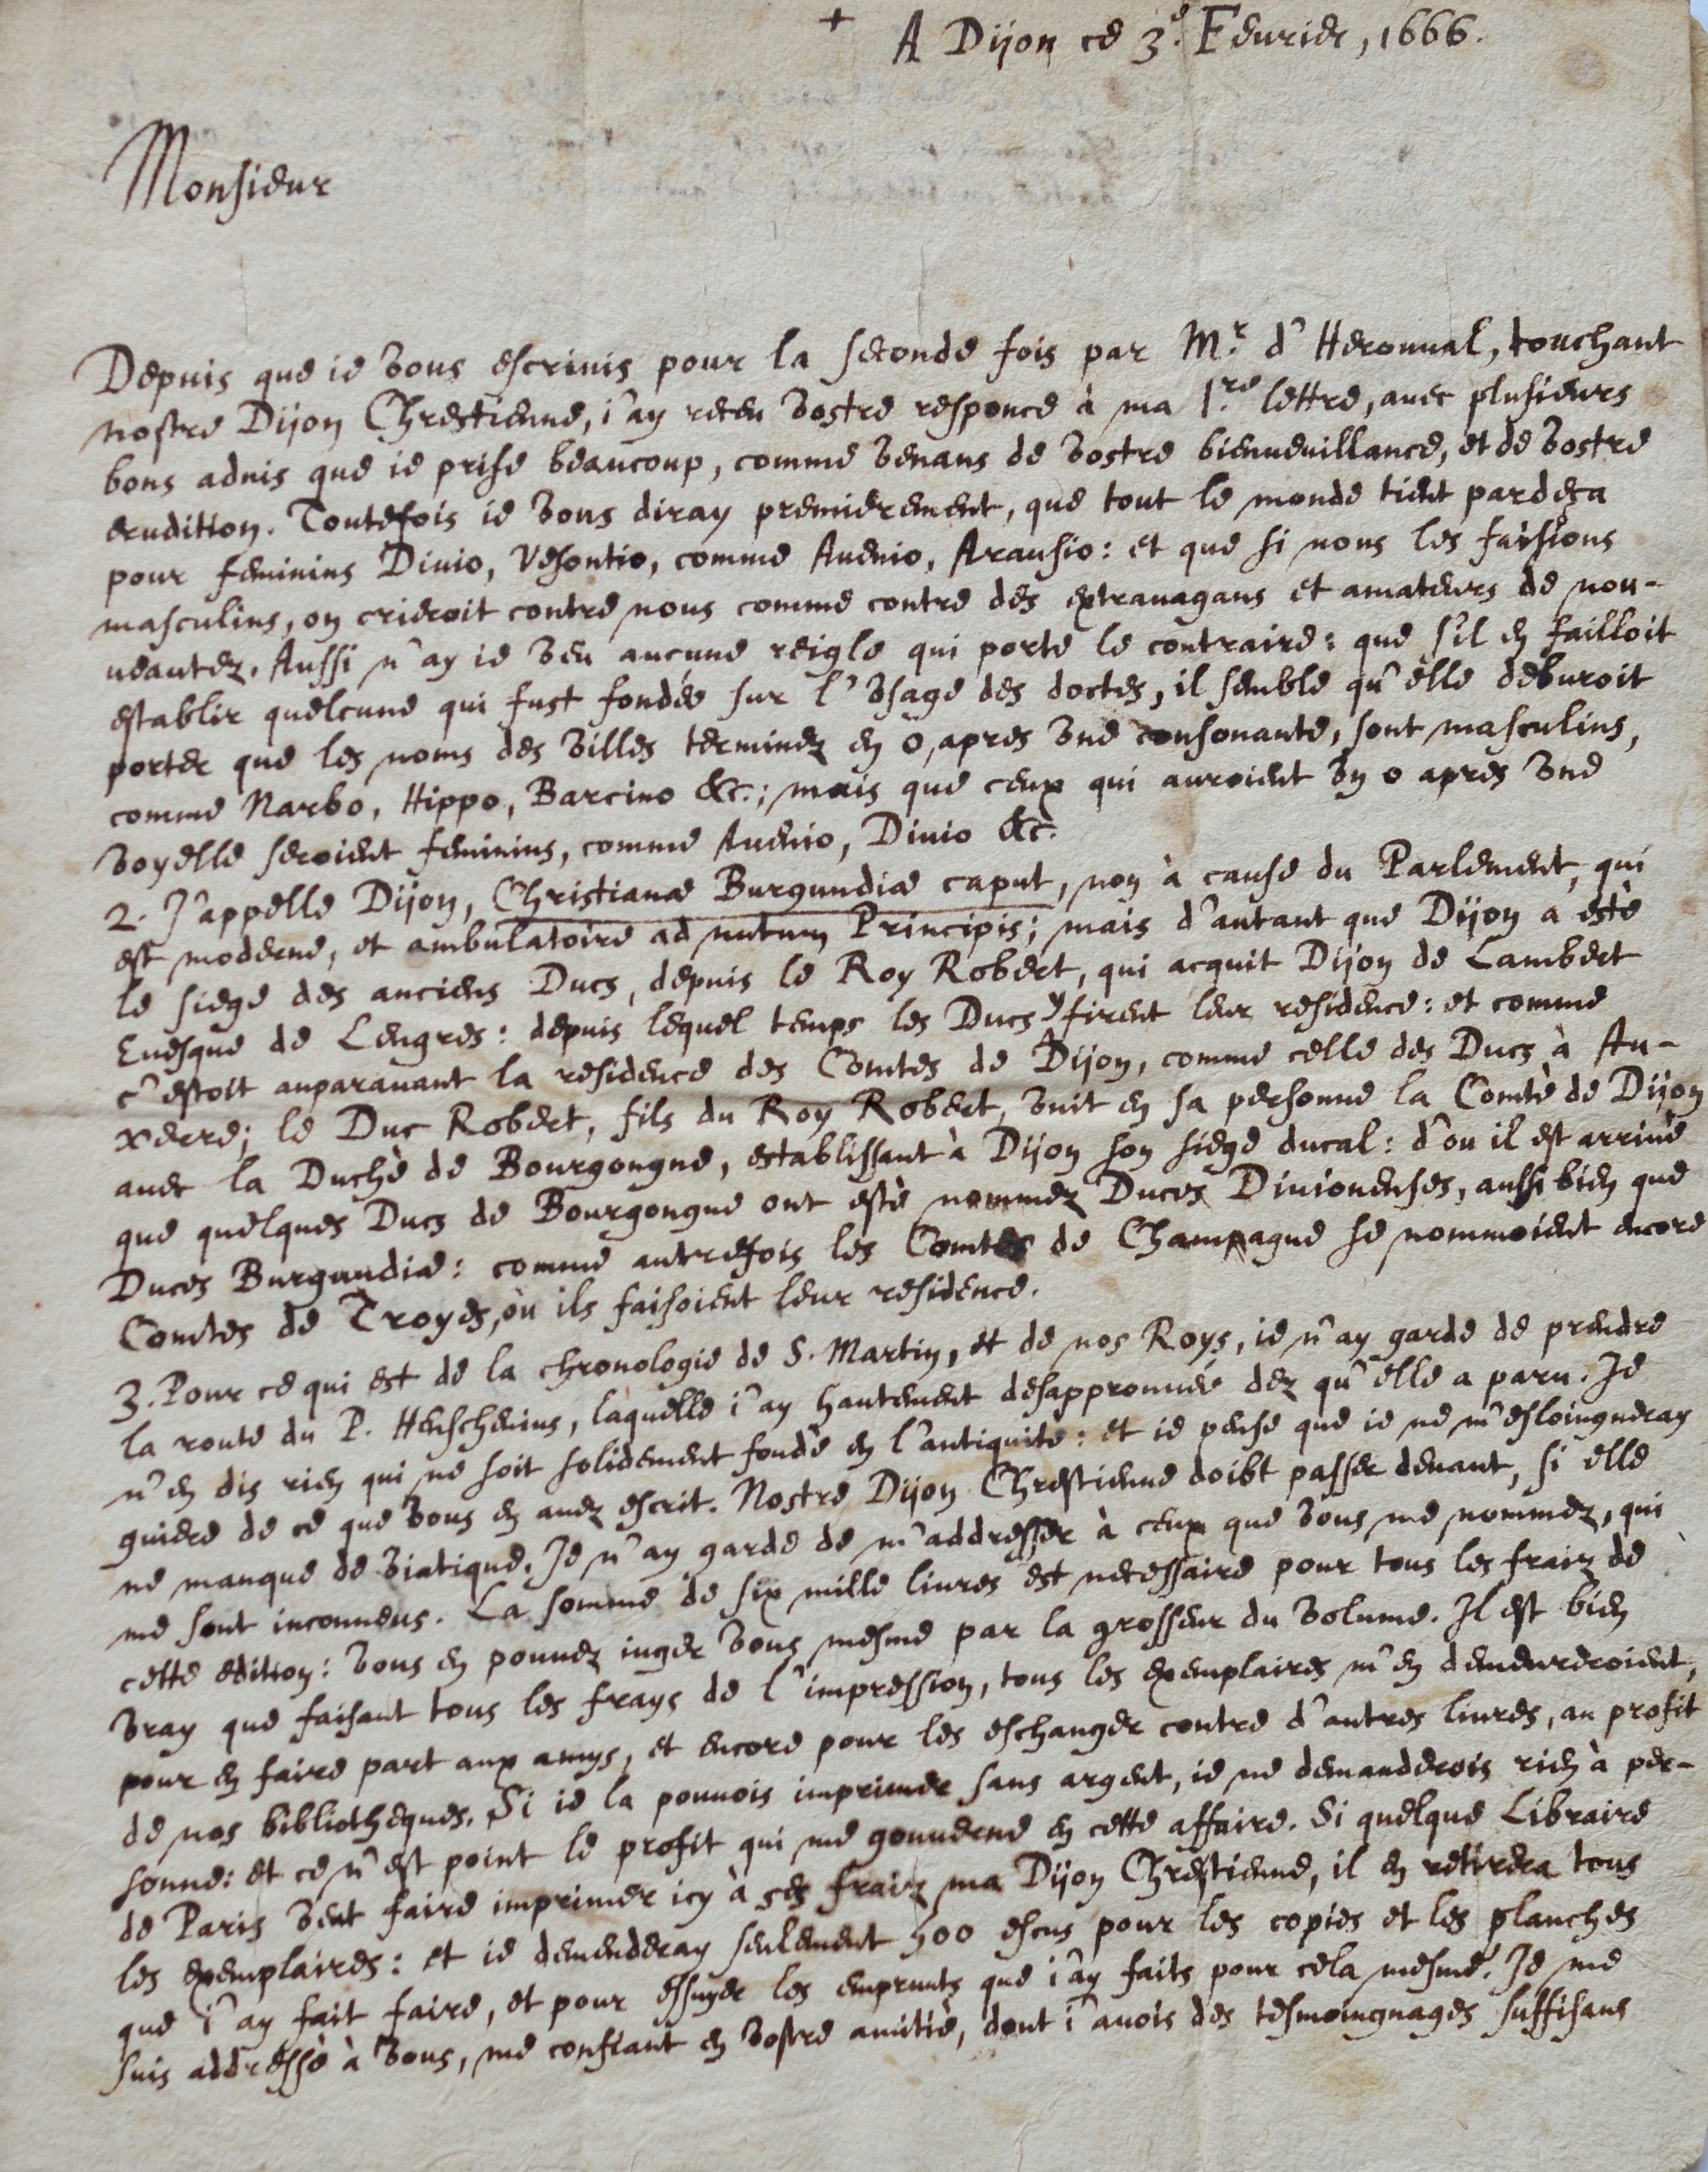 + A Dijon ce 3.e Feurier, 1666.
Monsieur
Depuis que ie vous escriuis pour la seconde fois par Mr. d'Herouual, touchant
nostre Dijon Chrestienne, i'ay receu vostre responce à ma 1.re lettre, auec plusieurs
bons aduis que ie prise beaucoup, comme venans de vostre bienueuillance, et de vostre
erudition. Toutefois ie vous diray premierement, que tout le monde tient pardeça
pour feminins Diuio, Vesontio, comme Auenio, Arausio: et que si nous les faisions
masculins, on crieroit contre nous comme contre des extrauagans et amateurs de nou-
ueautez. Aussi n'ay ie veu aucune reigle qui porte le contraire: que s'il en failloit
establir quelcune qui fust fondée sur l'vsage des doctes, il semble qu'elle deburoit
porter que les noms des villes terminez en o, apres vne consonante, sont masculins,
comme Narbo, Hippo, Barcino &c.; mais que ceux qui auroient vn o apres vne
voyelle seroient feminins, comme Auenio, Diuio &c.
2. J'appelle Dijon, Christianæ Burgundiæ caput, non à cause du Parlement, qui
est moderne, et ambulatoire ad nutum Principis; mais d'autant que Dijon a esté
le siege des anciens Ducs, depuis le Roy Robert, qui acquit Dijon de Lambert
Euesque de Lengres: depuis lequel temps les Ducs y firent leur residence: et comme
c'estoit auparauant la residence des Comtes de Dijon, comme celle des Ducs à Au-
xerre; le Duc Robert, fils du Roy Robert, vnit en sa personne la Comté de Dijon
auec la Duché de Bourgongne, establissant à Dijon son siege ducal: d'ou il est arriué
que quelques Ducs de Bourgongne ont esté nommez Duces Diuionenses, aussi bien que
Duces Burgundiæ: comme autrefois les Comtes de Champagne se nommoient encore
Comtes de Troyes, où ils faisoient leur residence.
3. Pour ce qui est de la chronologie de S. Martin, et de nos Roys, ie n'ay garde de prendre
la route du P. Henschenius, laquelle i'ay hautement desapprouuée dez qu'elle a paru. Je
n'en dis rien qui ne soit solidement fondé en l'antiquité: et ie pense que ie ne m'esloingneray
guiere de ce que vous en auez escrit. Nostre Dijon Chrestienne doibt passer deuant, si elle
ne manque de viatique. Je n'ay garde de m'addresser à ceux que vous me nommez, qui
me sont inconneus. La somme de six mille liures est necessaire pour tous les fraiz de
cette edition: vous en pouuez iuger vous mesme par la grosseur du volume. Il est bien
vray que faisant tous les frays de l'impression, tous les exemplaires m'en demeureroient,
pour en faire part aux amys, et encore pour les eschanger contre d'autres liures, au profit
de nos bibliotheques. Si ie la pouuois imprimer sans argent, ie ne demanderois rien à per-
sonne: et ce n'est point le profit qui me gouuerne en cette affaire. Si quelque Libraire
de Paris veut faire imprimer icy à ses fraiz ma Dijon Chrestienne, il en retirera tous
les exemplaires: et ie demenderay seulement 500 escus pour les copies et les planches
que i'ay fait faire, et pour essuyer les emprunts que i'ay faits pour cela mesme. Je me
suis addressé à vous, me confiant en vostre amitié, dont i'auois des tesmoingnages suffisans